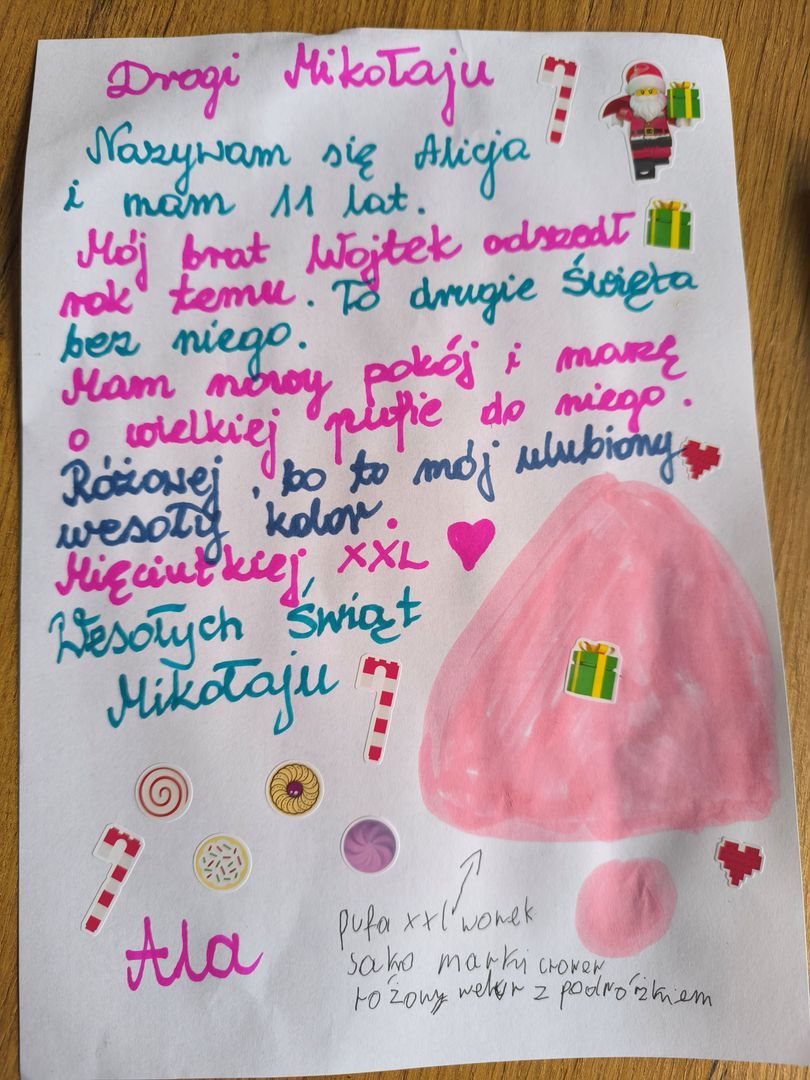 Drogi Mikołaju
Nazywam się Alicja
i mam 11 lat.
Mój brat Wojtek odszedł
rok temu. To drugie Święta
bez niego.
Mam nowy pokój i marzę
o wielkiej pufie do niego.
Różowej, bo to mój ulubiony
wesoły kolor
Mięciutkiej XXL
Wesołych Świąt
Mikołaju
Ala
pufa xxl worek
sako marki
różowy welur z podnóżkiem